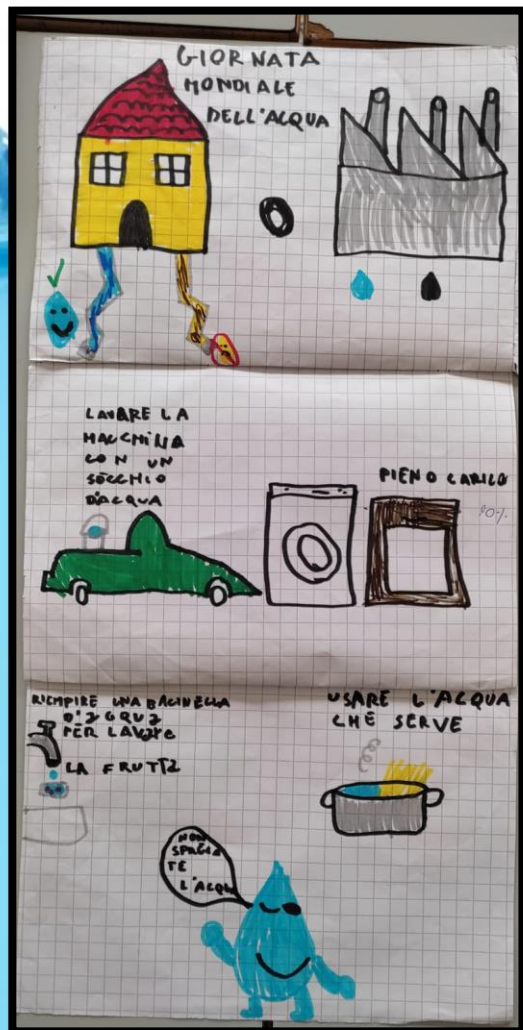 GIORNATA
MONDIALE
DELL'ACQUA
LAVARE LA
MACCHINA
CON UN
SECCHIO
D'ACQUA
PIENO CARICO
90%
RIEMPIRE UNA BACINELLA
D'ACQUA
PER LAVARE
LA FRUTTA
USARE L'ACQUA
CHE SERVE
NON
SPRECA
TE
L'ACQUA